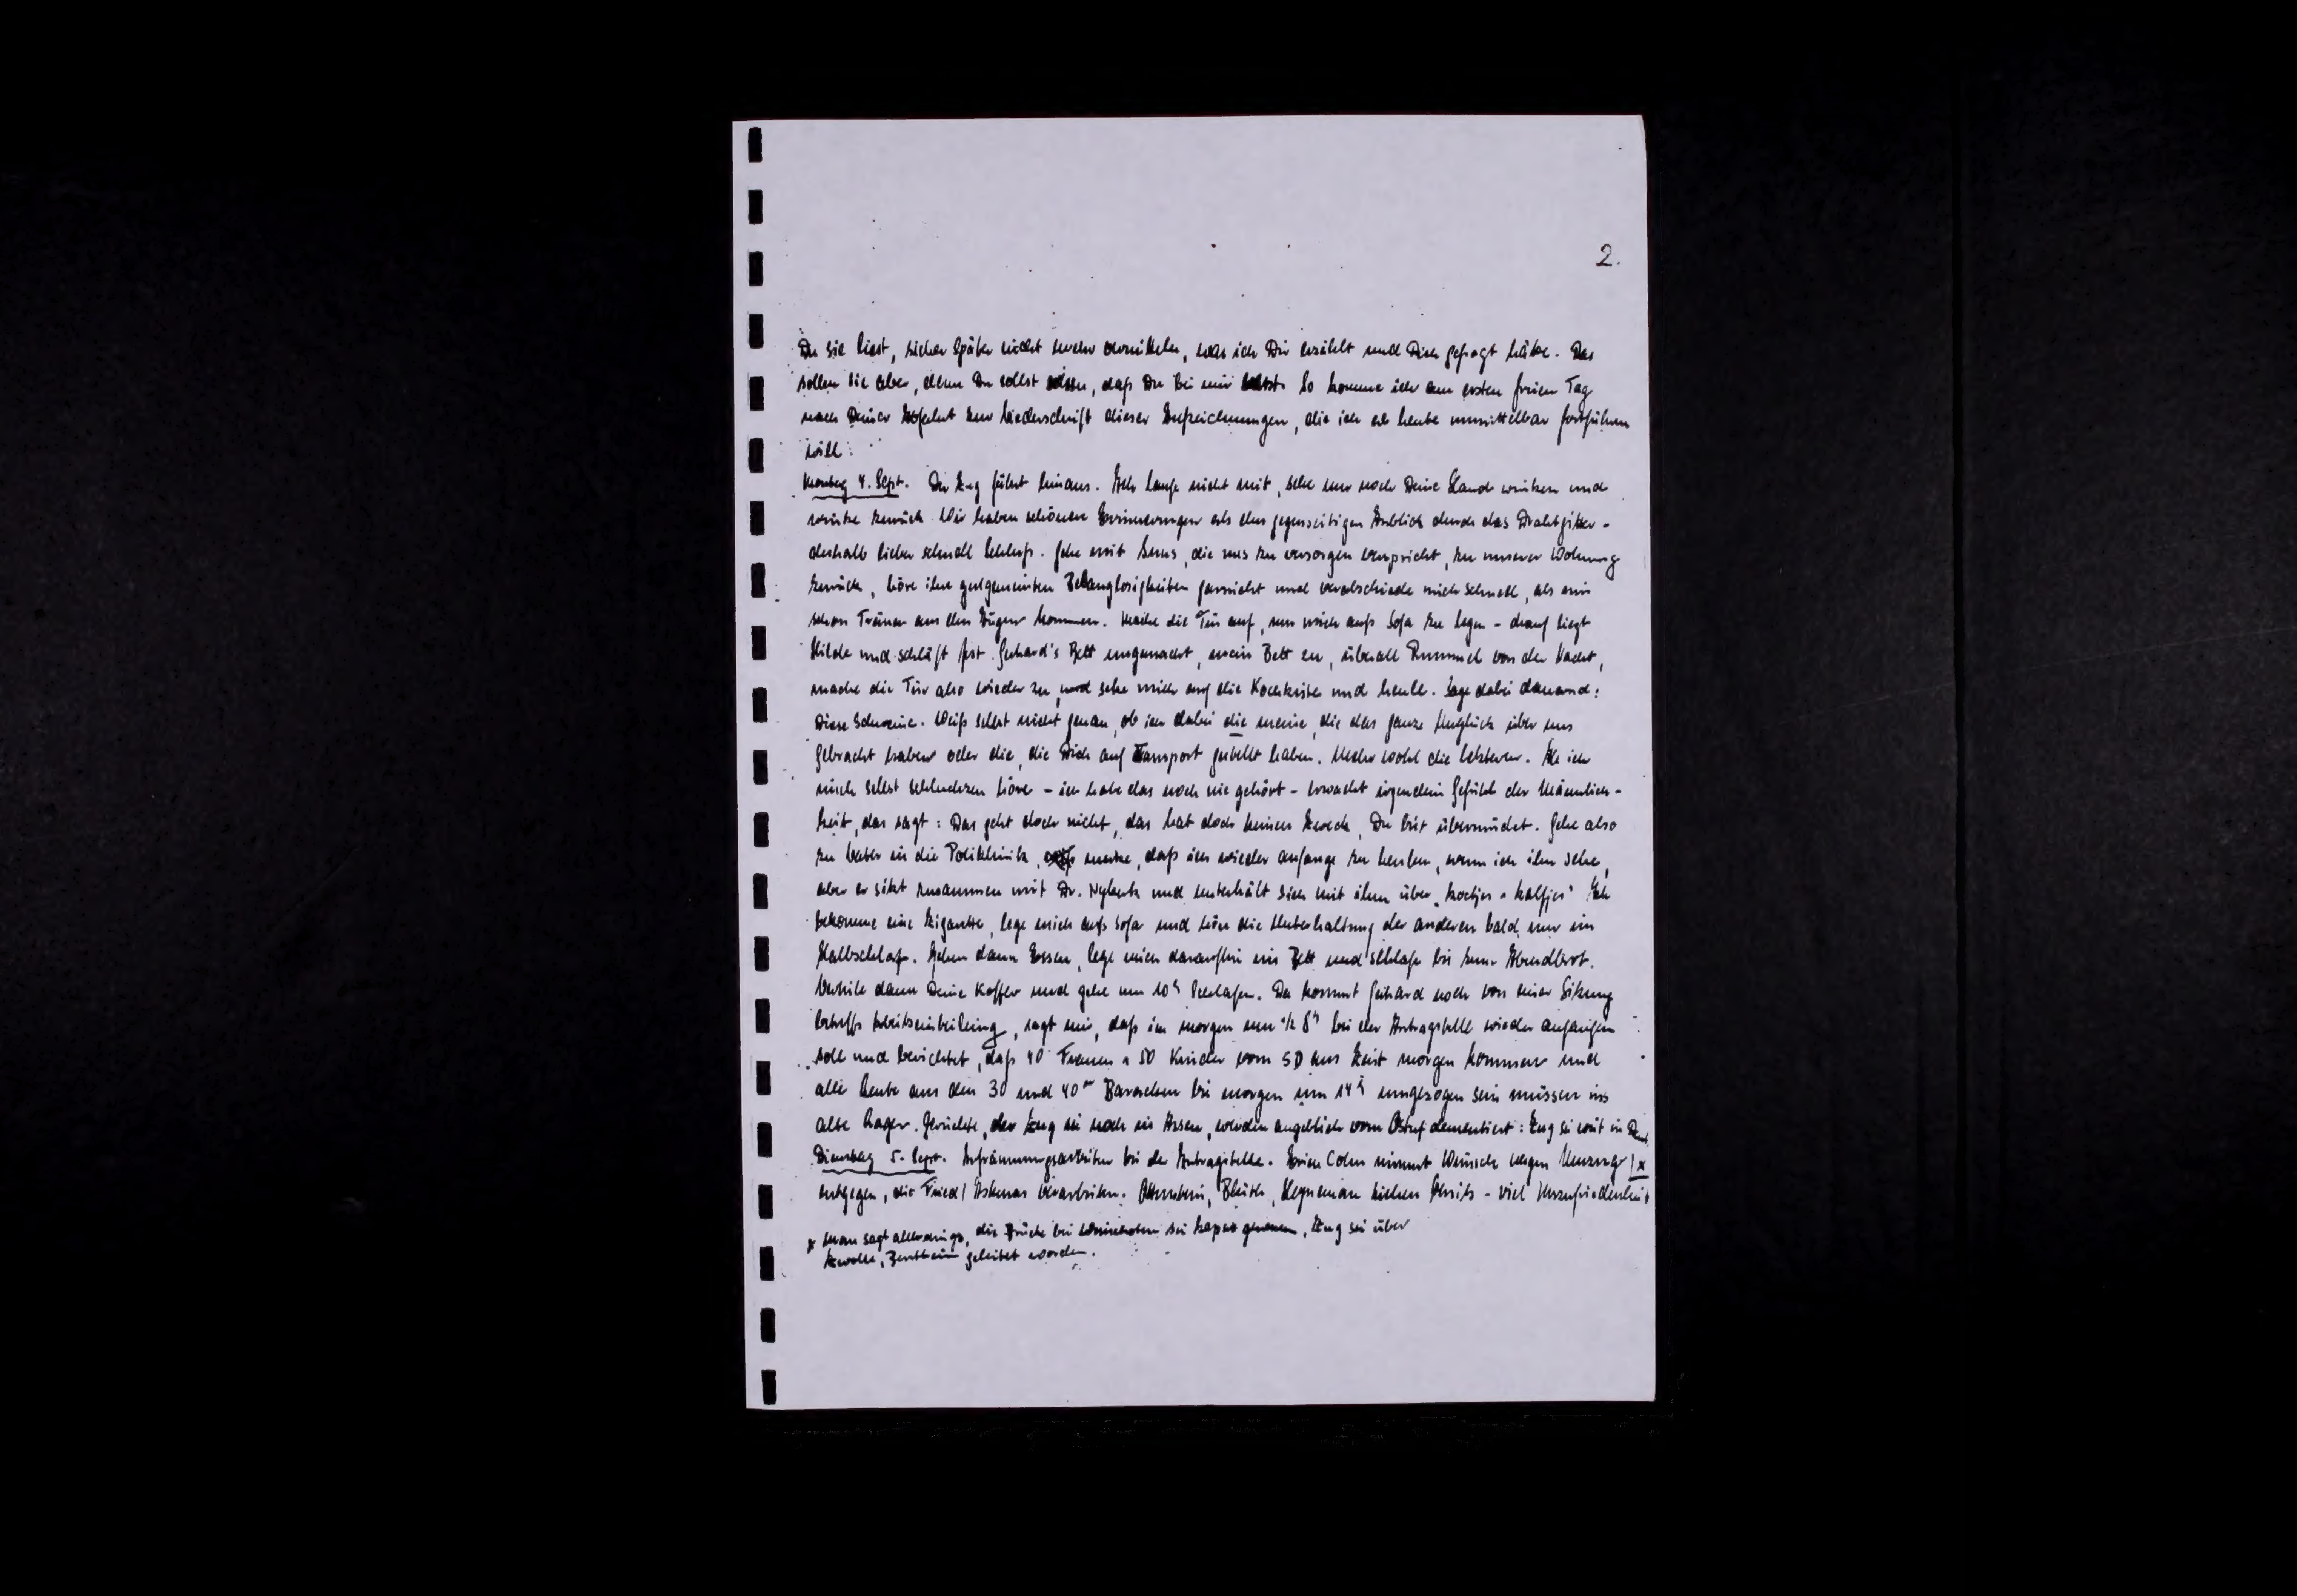 2.
Du sie liest, sicher später nicht mehr vermitteln, was ich Dir erzählt und Dich gefragt hätte. Das
sollen sie aber, denn Du sollst wissen, daß Du bei mir bist. So komme ich am ersten freien Tag
nach Deiner Abfahrt zur Niederschrift dieser Aufzeichnungen, die ich ab heute unmittelbar fortführen
will:
Montag 4. Sept. Der Zug fährt hinaus. Ich laufe nicht mit, sehe nur noch Deine Hand winken und
winke zurück. Wir haben schönere Erinnerungen als den gegenseitigen Anblick durch das Drahtgitter -
deshalb lieber schnell Schluss. Gehe mit, die uns zu versorgen verspricht, zu unserer Wohnung
zurück, höre ihre gutgemeinten Belanglosigkeiten garnicht und verabschiede mich schnell, als mir
schon Tränen aus den Augen kommen. Mache die Tür auf, um mich aufs Sofa zu legen - drauf liegt
Hilde und schläft fest. Gerhard's Bett ungemacht, mein Bett zu, überall Rummel von der Nacht,
mache die Tür also wieder zu, und setze mich auf die Kochkiste und heule. Sage dabei dauernd:
Diese Schweine. Weiß selbst nicht genau, ob ich dabei die meine, die das ganze Unglück über uns
gebracht haben oder die, die Dich auf Transport gestellt haben. Mehr wohl die letzteren. Als ich
mich selbst schluchzen höre - ich habe das noch nie gehört - erwacht irgendein Gefühl der Männlich-
keit, das sagt: Das geht doch nicht, das hat doch keinen Zweck, Du bist übermüdet. Gehe also
zu in die Poliklinik, merke, daß ich wieder anfange zu heulen, wenn ich ihn sehe,
aber er sitzt zusammen mit Dr. und unterhält sich mit ihm über "koetjes u kalfjes" Ich
bekomme eine Zigarette, lege mich aufs Sofa und höre die Unterhaltung der anderen bald nur im
Halbschlaf. Gehen dann Essen, lege mich daraufhin ins Bett und schlafe bis zum Abendbrot.
dann Deine Koffer und gehe um 10h schlafen. Da kommt Gerhard noch von einer Sitzung
betreffs Arbeitseinteilung, sagt mir, daß ich morgen um ½ 8h bei der Antragstelle wieder anfangen
soll und berichtet, daß 40 Frauen u 50 Kinder vom SD aus Zeist morgen kommen und
alle Leute aus den 30 und 40er Baracken bis morgen um 14h umgezogen sein müssen ins
alte Lager. Gerüchte, der Zug sei noch in Assen, werden angeblich vom Ostuf dementiert: Zug sei weit in
Dienstag 5. Sept. Aufräumungsarbeiten bei der Antragstelle. Cohn nimmt Wünsche wegen Umzug /x
entgegen, die Fried / Askenas bearbeiten. - viel Unzufriedenheit
x Man sagt allerdings, die Brücke bei sei kaput, Zug sei über
Zwolle, Bentheim geleitet worden.